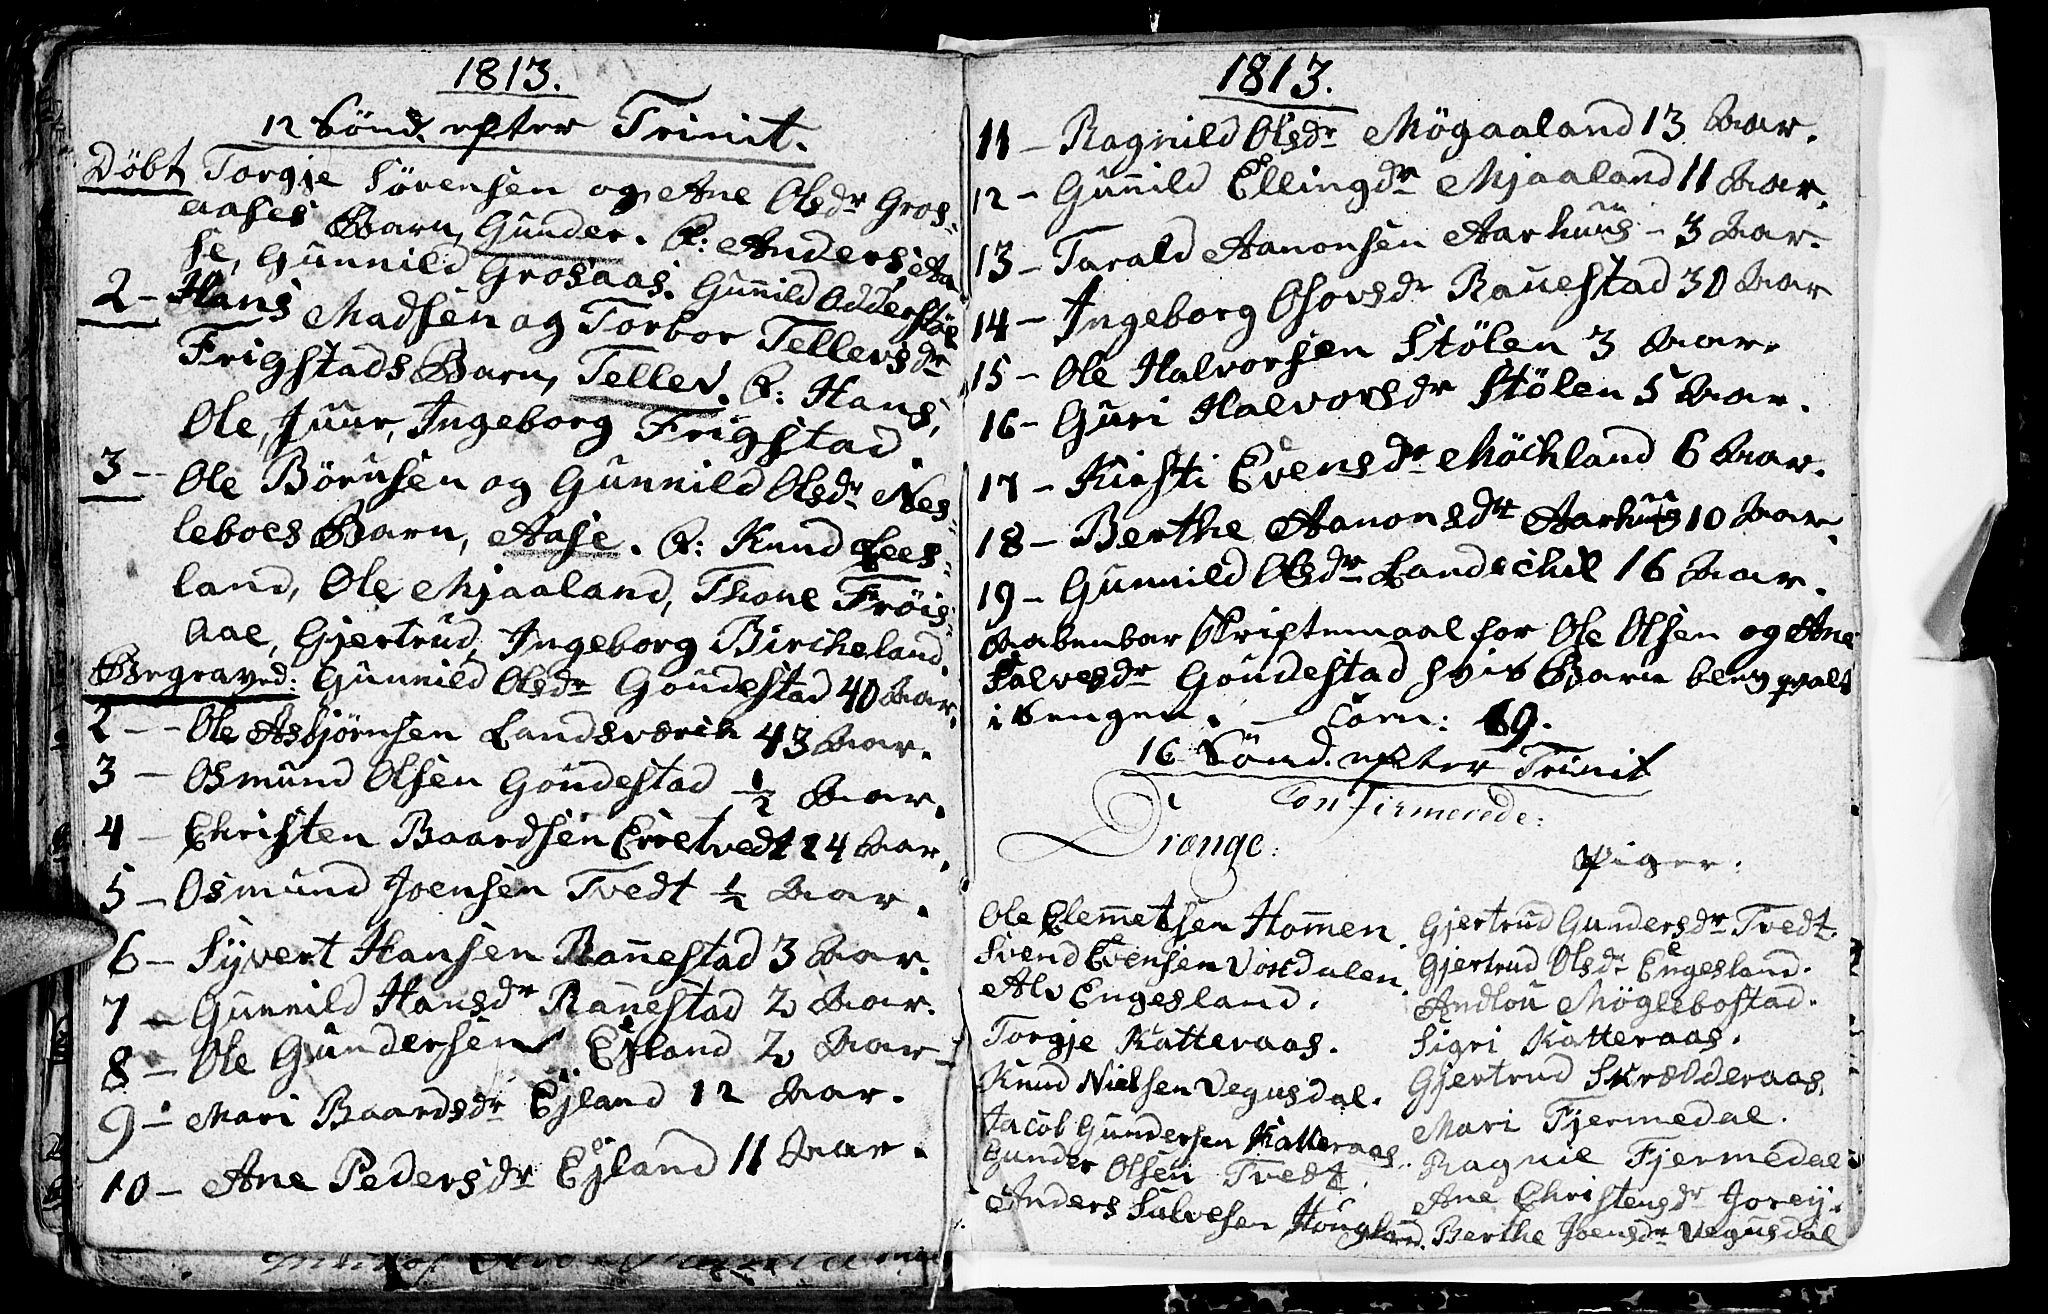 1813.
12 Sönd. efter Trinit.
Döbt Torgje Sörensen og Ane Olsdr Gros-
aases Barn, Gunder. F: Anders, Aa
se, Gunnild Grosaas. Gunild Odderstöl
2 - Hans Madsen og Torbor Tellevsdr
Frigstads Barn, Tellev. F: Hans,
Ole, Juur, Ingeborg Frigstad.
3 - Ole Börnsen og Gunnild Olsdr Nes-
leboes Barn, Aase. F: Knud Lees-
land, Ole Mjaaland, Thone Fröis-
aae, Gjertrud, Ingeborg Birckeland.
Begraved: Gunnild Olsdr Goudestad 40 Aar.
2 - - Ole Asbjörnsen Landsværck 43 Aar.
3 - Osmund Olsen Goudestad ½ Aar.
4 - Christen Baardsen Erretvedt 24 Aar.
5 - Osmund Joensen Tvedt ½ Aar.
6 - Syvert Hansen Rauestad 3 Aar.
7 - Gunnild Hansdr Rauestad 2 Aar.
8 - Ole Gundersen Ejland 2 Aar -
9 - Mari Baardsdr Ejland 12 Aar.
10 - Ane Pedersdr Ejland 11 Aar.
1813.
11 - Ragnild Olsdr Mögaaland 13 Aar.
12 - Gunild Ellingdr Mjaaland 11 Aar.
13 - Tarald Aanonsen Aarhuus - 3 Aar.
14 - Ingeborg Osovsdr Rauestad 30 Aar
15 - Ole Halvorsen Stölen 3 Aar.
16 - Guri Halvorsdr Stölen 5 Aar.
17 - Kirsti Evensdr Möckland 6 Aar.
18 - Berthe Aanonsdr Aarhuus 10 Aar.
19 - Gunnild Olsdr Landschil 16 Aar.
Aabenbar Skriftemaal for Ole Olsen og Ane
Salvesdr Goudestad hvis Barn blev qvalt
i Sengen. - Com: 69.
16 Sönd. efter Trinit
Confirmerede:
Drænge: Piger:
Ole Clemmetsen Hommen. Gjertrud Gundersdr Tvedt.
Svend Evensen Vosdalen. Gjertrud Olsdr Engesland.
Alv Engesland. Andlou Möglebostad.
Torgje Katteraas. Sigri Katteraas.
Knud Nielsen Vegusdal. Gjertrud Skrælderaas.
Jacob Gundersen Katteraas. Mari Fjermedal.
Gunder Olsen Tvedt. Ragnil Fjermedal
Anders Salvesen Hougland. Ane Christensdr Jorey.
Berthe Joensdr Vegusdal